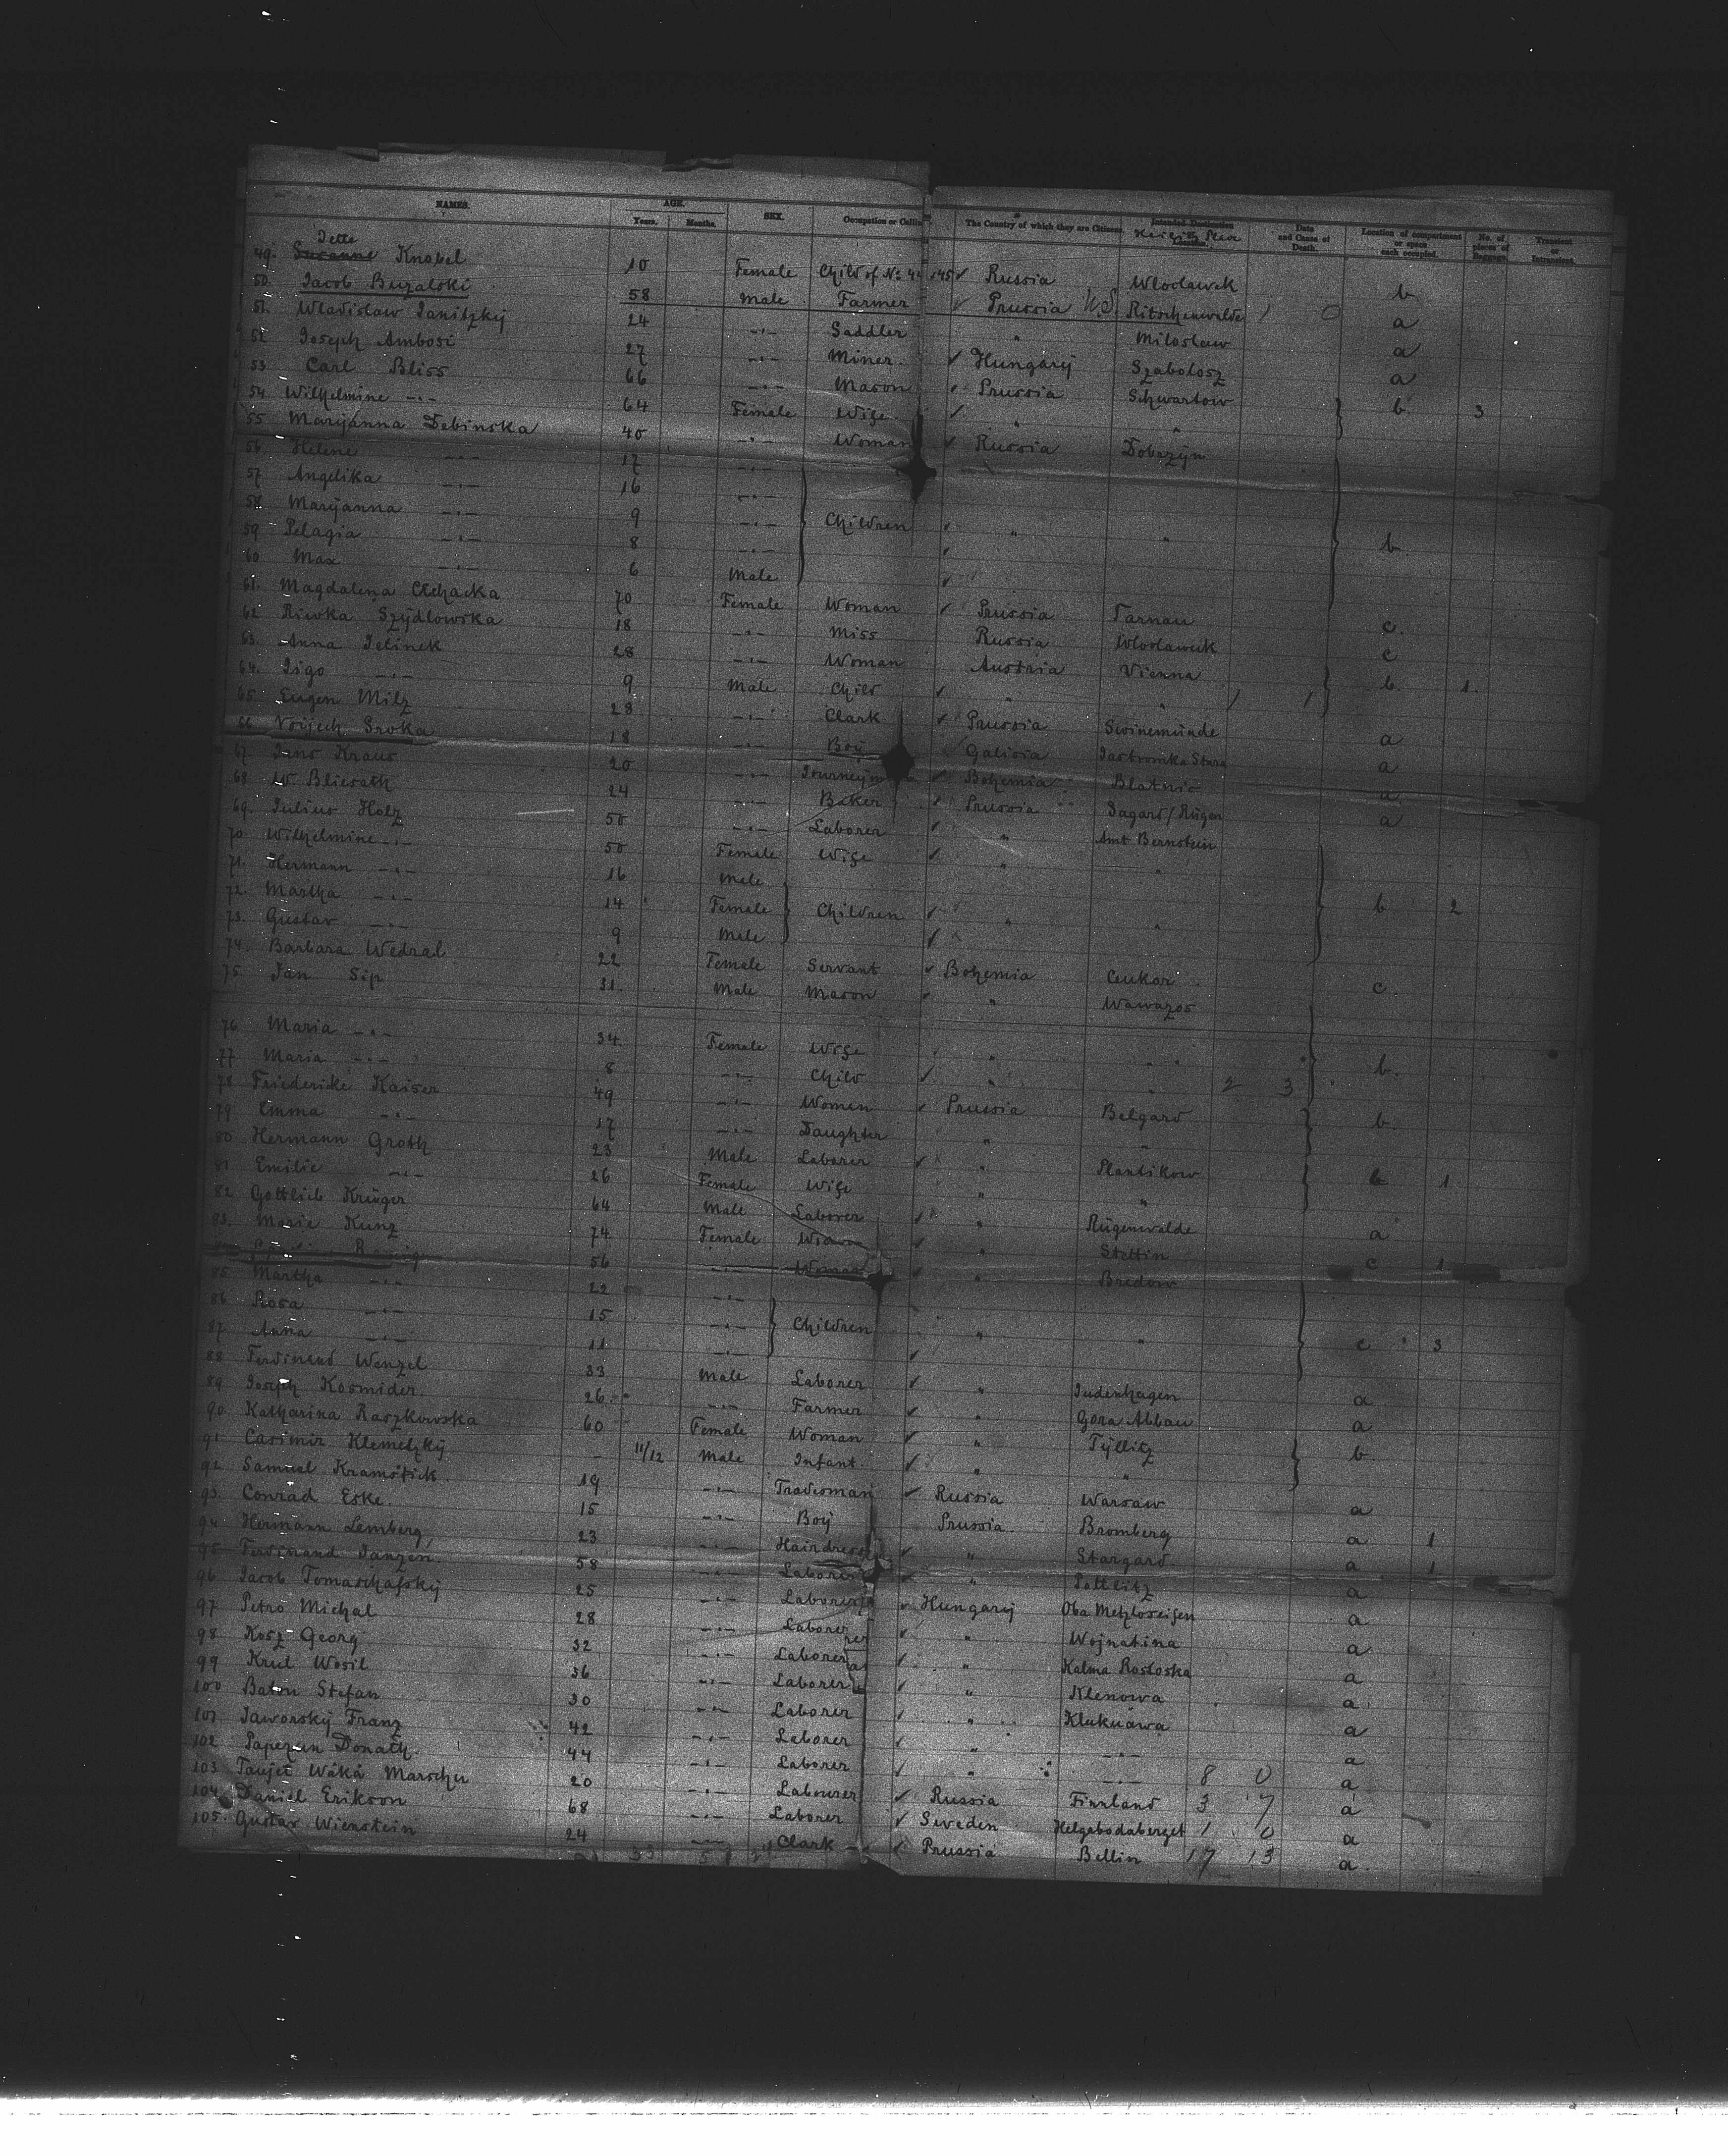 NAMES. AGE. Years. Months. SEX. Occupation or Calling The Country of which they are Citizens. Intended Destination Date and Cause of Death. Location of compartment or space each occupied. No. of pieces of Baggage. Transient or Intransient.
Jette
49. Susanne Knobel 10 Female Child of No: 44 Russia Wloclawek b
50. Jacob Buzalski 58 Male Farmer Prussia U.S. Ritschenwalde 0 a
51. Wladislaw Janitzky 24 -"- Saddler " Miloslaw a
52 Joseph Ambosi 27 -"- Miner Hungary Szabolosz a
53 Carl Bliss 66 -"- Mason Prussia Schwartow b 3
54 Wilhelmine -"- 64 Female Wife " "
55 Maryanna Debinska 40 -"- Woman Russia Dobrzyn
56 Helene -"- 17 -"-
57 Angelika -"- 16 -"-
58 Maryanna -"- 9 -"- Children " " b
59 Pelagia -"- 8 -"-
60 Max -"- 6 Male
61. Magdalena 70 Female Woman Prussia Tarnau c.
62 Riwka Szydlowska 18 -"- Miss Russia Wloclawek c
63. Anna Jelinek 28 -"- Woman Austria Vienna b. 1.
64. Sigo -"- 9 Male Child " "
65. Eugen Milz 28 -"- Clark Prussia Swinemünde a
66 Voijech Sroka 18 -"- Boy Galicia Stara a
67. Kraus 20 -"- Bohemia Blatnic a
68. W Blieseth 24 -"- Baker Prussia Sagard/Rügen a
69. Julius Holz 50 -"- Laborer " Amt Bernstein
70. Wilhelmine -"- 50 Female Wife " "
71. Hermann -"- 16 Male
72. Martha -"- 14 Female Children " " b 2
73. Gustav -"- 9 Male
74. Barbara Wedral 22 Female Servant Bohemia Cukor c.
75 Jan Sip 31. Male Mason " Wawazos
76 Maria -"- 34 Female Wife " " b.
77 Maria -"- 8 -"- Child " " 2 3
78 Friedericke Kaiser 49 -"- Women Prussia Belgard b.
79. Emma -"- 17 -"- Daughter " "
80 Hermann Groth 23 Male Laborer " Plantikow b 1
81 Emilie -"- 26 Female Wife " "
82 Gottlieb Krüger 64 Male Laborer " Rügenwalde a
83. Marie Kunz 74 Female " Stettin c 1
56 -"- Woman " Bredow
85 Martha -"- 22 -"-
86 Rosa -"- 15 -"- Children " " c 3
87 Anna -"- 11 -"-
88 Ferdinand Wenzel 33 Male Laborer " Judenhagen a
89 Joseph Kosmider 26 -"- Farmer " Gora Abbau a
90 Katharina Raszkowska 60 Female Woman " Tyllitz b
91 Casimir Klemetzky - 11/12 Male Infant " "
92 Samuel Kramstick. 19 -"- Tradesman Russia Warsaw a
93. Conrad Eske. 15 -"- Boy Prussia Bromberg a 1
94 Hermann Lemberg 23 -"- Hairdresser " Stargard a 1
95 Ferdinand Janzen 58 -"- Laborer " Pottlitz a
96 Jacob Tomaschafsky 25 -"- Laborer Hungary Oba Metzloseifen a
97 Petro Michal 28 -"- Laborer " Wojnatina a
98 Kosz Georg 32 -"- Laborer " Kalma Rostoska a
99 Krul Wasil 36 -"- Laborer " Klenowa a
100 Baton Stefan 30 -"- Laborer " Klukuawa a
101 Jaworsky Franz 42 -"- Laborer " -"- a
102 Papezun Donath. 44 -"- Laborer " -"- 8 0 a
103 Taujet Wäkä Marscher 20 -"- Labourer Russia Finnland 3 7 a
104 Daniel Erikson 68 -"- Laborer Sweden Helgebodaberget 1 0 a
105. Gustav Wienstein 24 -"- Clark Prussia Bellin 17 13 a.